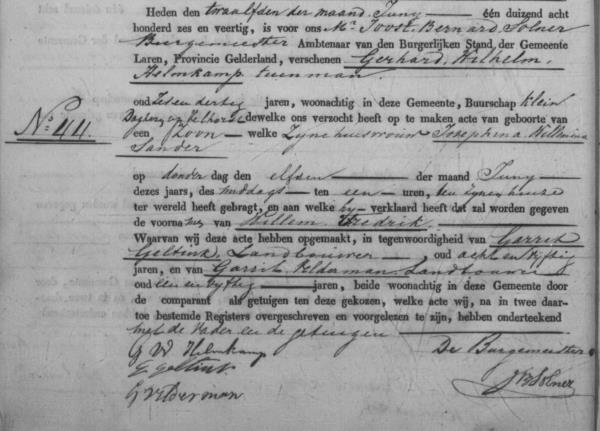 Heden den twaalfden der maand Juny — één duizend acht
honderd zes en veertig, is voor ons Mr. Joost Bernard Solner
Burgemeester Ambtenaar van den Burgerlijken Stand, der Gemeente
Laren, Provincie Gelderland, verschenen Gerhard Wilhelm
Helmkamp tuinman
oud zes en dertig jaren, woonachtig in deze Gemeente, Buurschap Klein
No. 44.
dewelke ons verzocht heeft op te maken acte van geboorte van
een zoon — welke Zijne huisvrouw Josephina Willemina
Sander
op donder dag den elfden — der maand Juny —
dezes jaars, des middags — ten een — uren, ten zijnen huize
ter wereld heeft gebragt, en aan welke hy — verklaard heeft dat zal worden gegeven
de voorna men van Willem Fredrik.
Waarvan wij deze acte hebben opgemaakt, in tegenwoordigheid van Garrit
Geltink, Landbouwer — oud acht en vyftig
jaren, en van Garrit Veldaman Landbouwer
oud een en vyftig — jaren, beide woonachtig in deze Gemeente door
de comparant als getuigen ten deze gekozen, welke acte wij, na in twee daar-
toe bestemde Registers overgeschreven en voorgelezen te zijn, hebben onderteekend
met de Vader en de getuigen
G W Helmkamp
De Burgemeester
G geltink
JB Solner
G Velderman